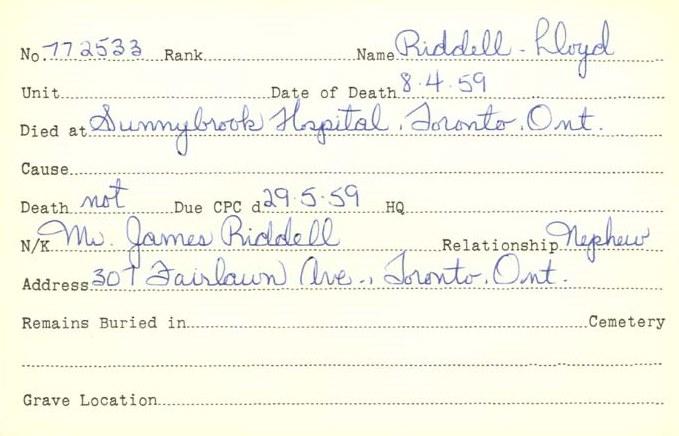 No. 772533 Rank Name Riddell - Lloyd
Unit Date of Death 8.4.59
Died at Sunnybrook Hospital, Toronto, Ont.
Cause
Death not Due CPC d 29.5.59 HQ
N/K Mr. James Riddell Relationship Nephew
Address 307 Fairlawn Ave., Toronto, Ont.
Remains Buried in Cemetery
Grave Location